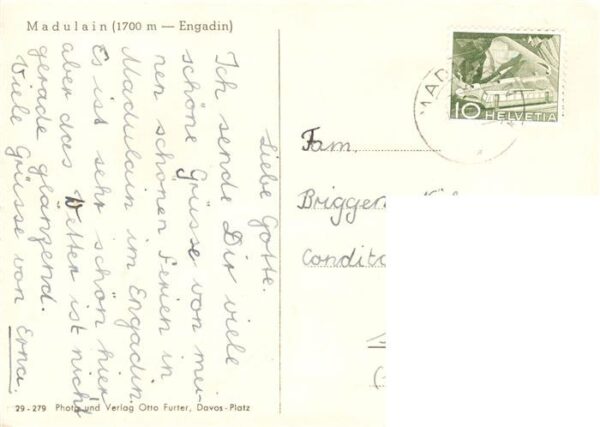 Madulain (1700 m — Engadin)
Liebe Gotte.
Ich sende Dir viele
schöne Grüsse von mei-
nen schönen Ferien in
Madulain im Engadin.
Es ist sehr schön hier
aber das Wetter ist nicht
gerade glänzend.
Viele Grüsse von Erna.
29 - 279 Photo und Verlag Otto Furter, Davos - Platz
10 HELVETIA
MAD
Fam.
Briggen
Condito